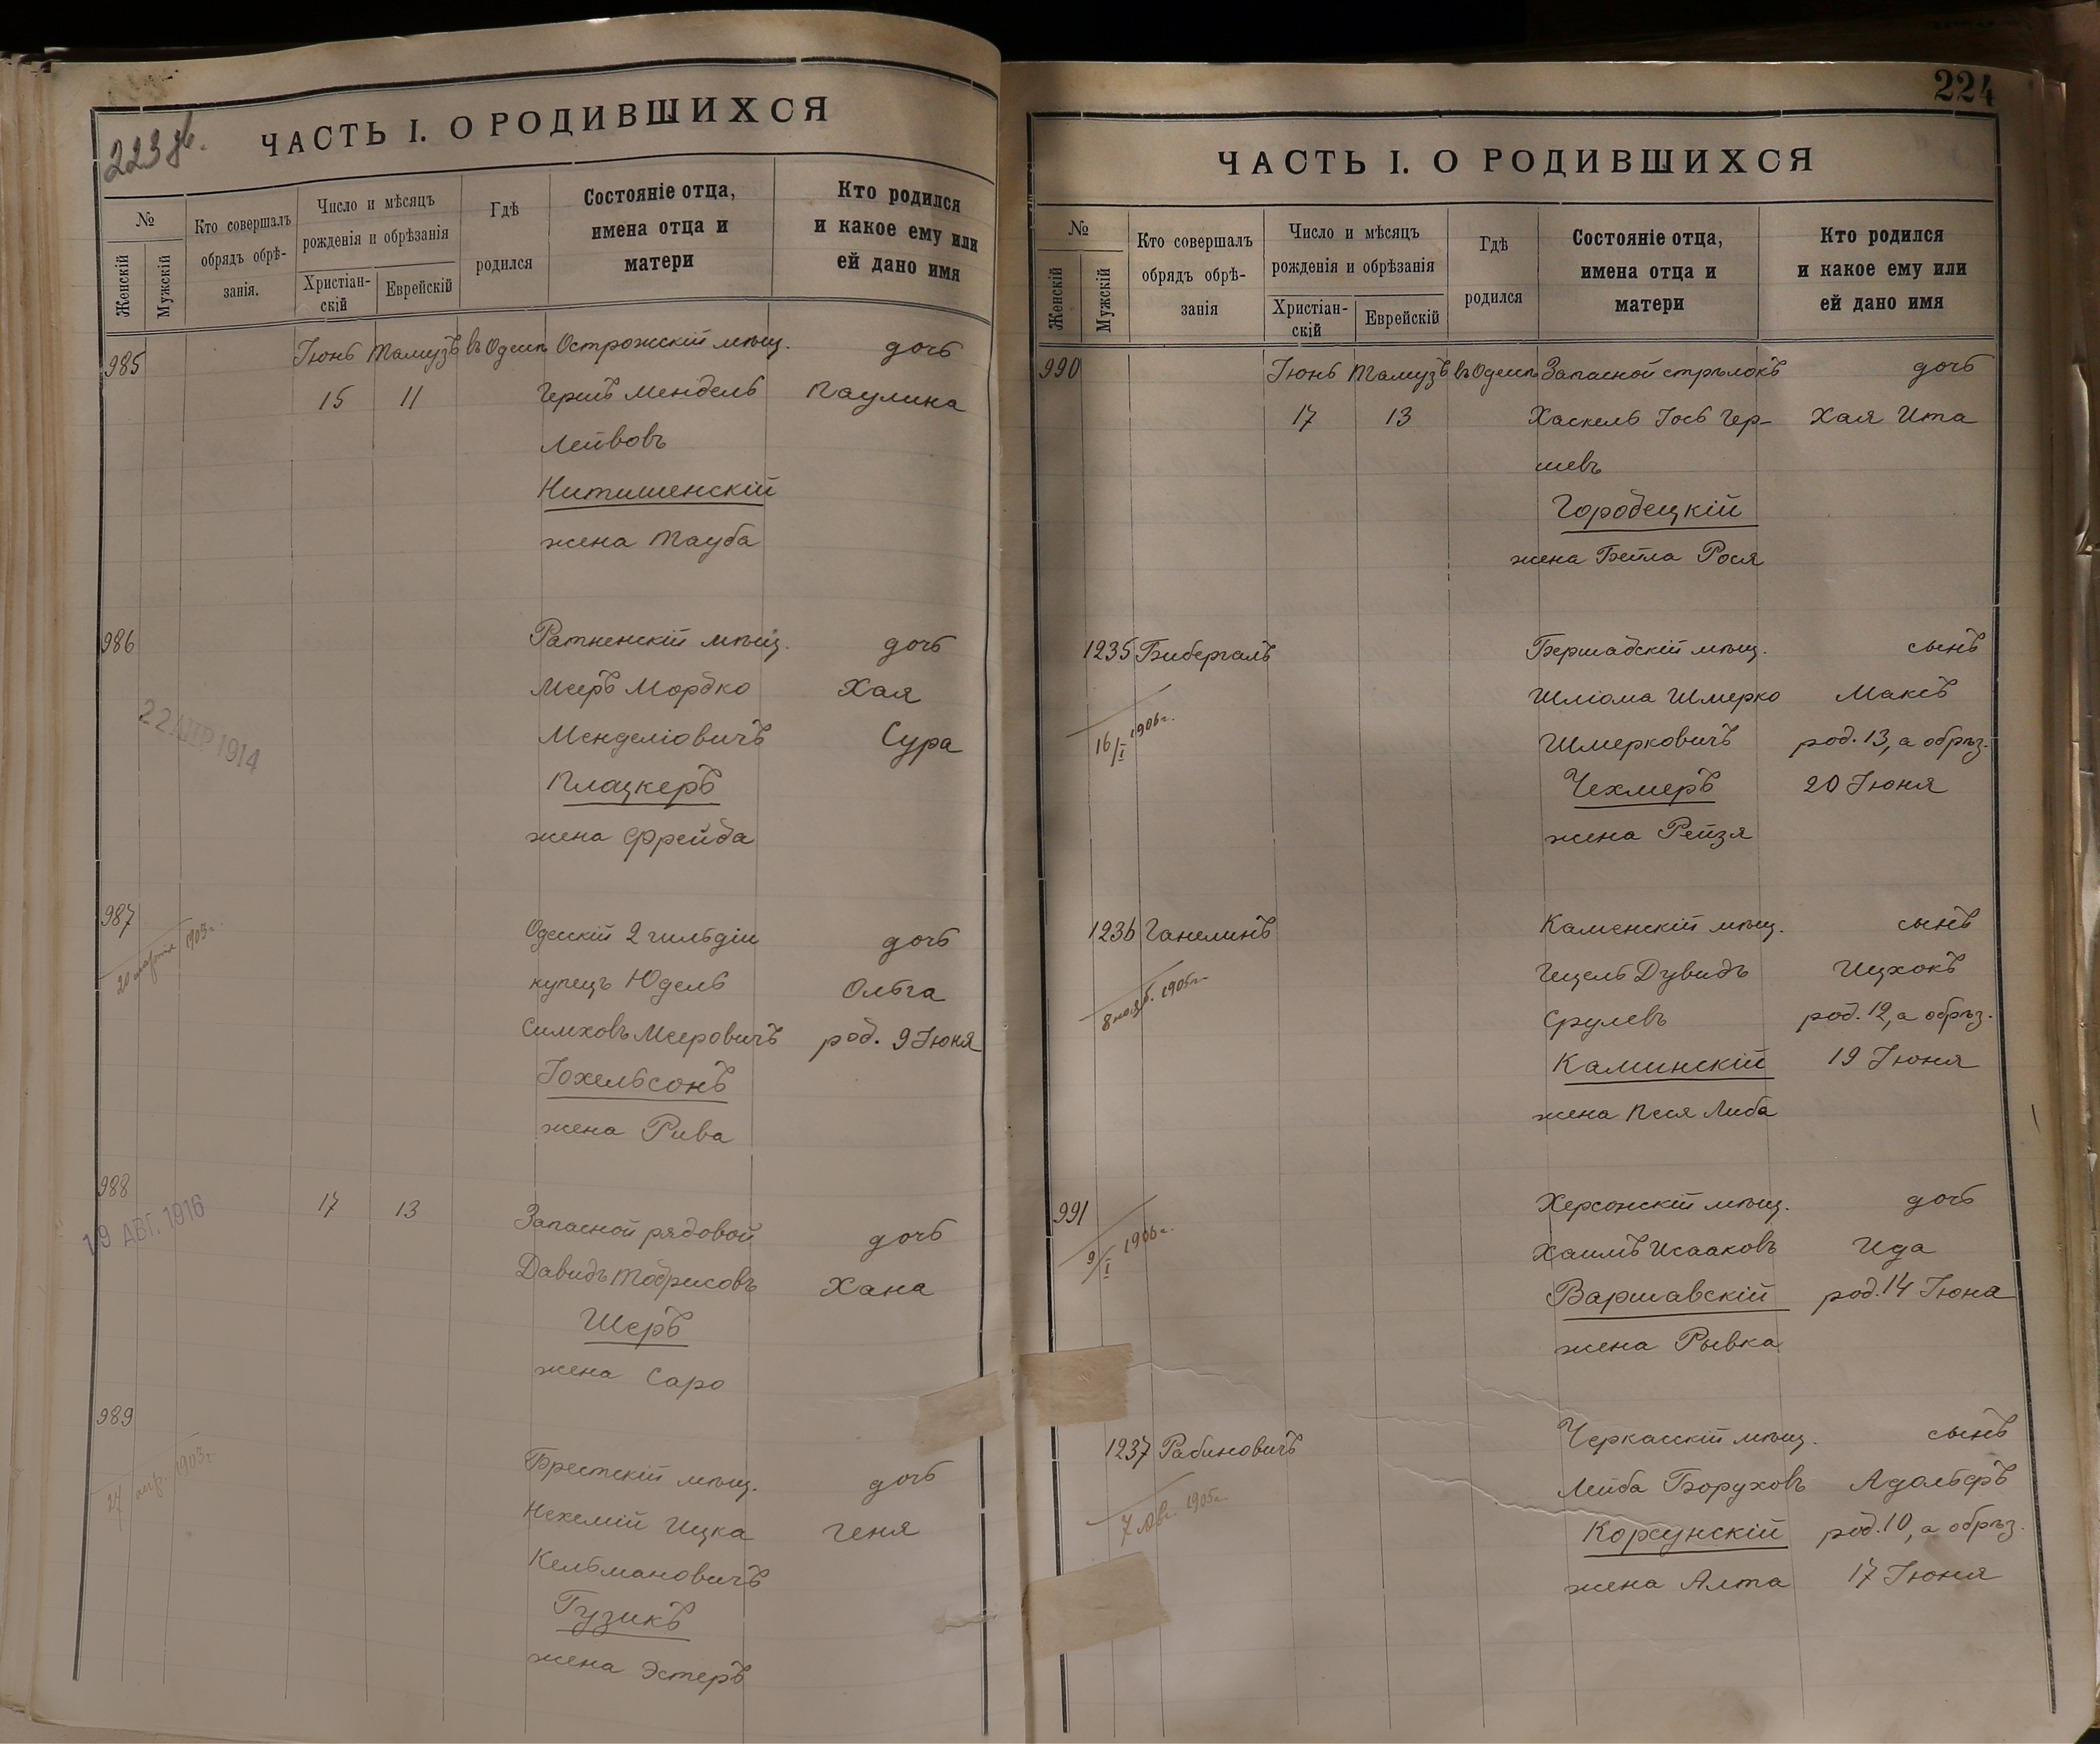 223 об.
ЧАСТЬ I. О РОДИВШИХСЯ
№
Женскій
Мужскій
Кто совершалъ
обрядъ обрѣ-
занія.
Число и мѣсяцъ
рожденія и обрѣзанія
Христіан-
скій
Еврейскій
Гдѣ
родился
Состояніе отца,
имена отца и
матери
Кто родился
и какое ему или
ей дано имя
985 Іюнь Тамузъ въ Одессѣ Острожскій мѣщ. дочь
15 11 Гершъ Мендель Паулина
Лейвовъ
Нитишенскій
жена Тауба
986 Ратненскій мѣщ. дочь
Мееръ Мордко Хая
Менделіовичъ Сура
22 АПР 1914
Плацкеръ
жена Фрейда
987 Одесскій 2 гильдіи дочь
20 марта 1903 г.
купецъ Юдель Ольга
Симховъ Мееровичъ род. 9 Іюня
Іохельсонъ
жена Рива
988 17 13 Запасной рядовой дочь
19 АВГ. 1916
Давидъ Тобрисовъ Хана
Шеръ
жена Саро
989 Брестскій мѣщ. дочь
27 апр. 1903 г.
Нехемій Ицка Геня
Кельмановичъ
Гузикъ
жена Эстеръ
224
ЧАСТЬ I. О РОДИВШИХСЯ
№
Женскій
Мужскій
Кто совершалъ
обрядъ обрѣ-
занія
Число и мѣсяцъ
рожденія и обрѣзанія
Христіан-
скій
Еврейскій
Гдѣ
родился
Состояніе отца,
имена отца и
матери
Кто родился
и какое ему или
ей дано имя
990 Іюнь Тамузъ въ Одессѣ Запасной стрѣлокъ дочь
17 13 Хаскель Іось Гер-
шевъ Хая Ита
Городецкій
жена Бейла Рося
1235 Бибергалъ Бершадскій мѣщ. сынъ
16/I 1906 г.
Шліома Шмерко Максъ
Шмерковичъ род. 13, а обрѣз.
Чехмеръ 20 Іюня
жена Рейзя
1236 Ганелинъ Каменскій мѣщ. сынъ
8 нояб. 1905 г.
Гецель Дувидъ Ицхокъ
Срулевъ род. 12, а обрѣз.
Каминскій 19 Іюня
жена Песя Либа
991 Херсонскій мѣщ. дочь
9/I 1906 г.
Хаимъ Исааковъ Ида
Варшавскій род. 14 Іюня
жена Рывка
1237 Рабиновичъ Черкасскій мѣщ. сынъ
7 авг. 1905 г.
Лейба Боруховъ Адольфъ
Корсунскій род. 10, а обрѣз.
жена Алта 17 Іюня